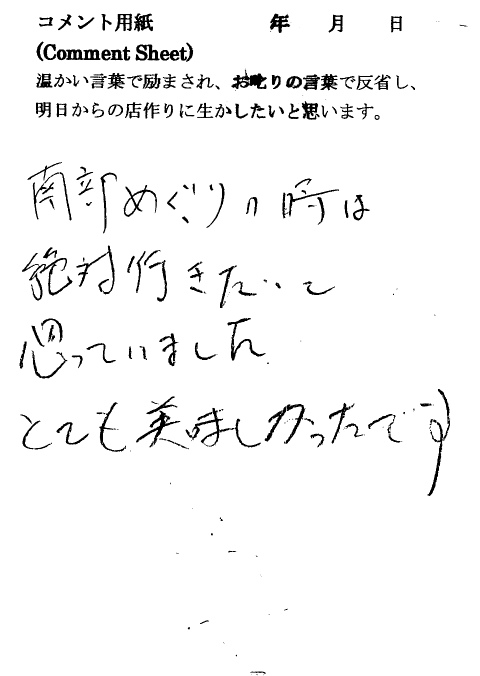 コメント用紙 年 月 日
(Comment Sheet)
温かい言葉で励まされ、お叱りの言葉で反省し、
明日からの店作りに生かしたいと思います。
南部めぐりの時は
絶対行きたいと
思っていました
とても美味しかったです